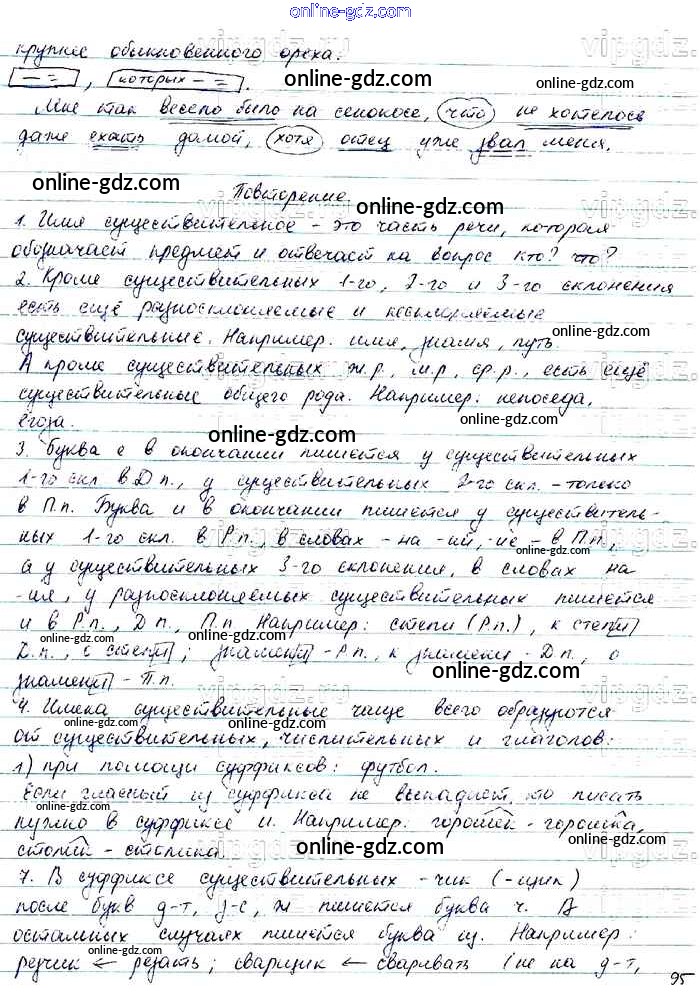 online-gdz.com
крупнее обыкновенного ореха.
[– =], [которых – =].
Мне так весело было на сенокосе, что не хотелось
даже ехать домой, хотя отец уже звал меня.
Повторение.
1. Имя существительное – это часть речи, которая
обозначает предмет и отвечает на вопрос кто? что?
2. Кроме существительных 1-го, 2-го и 3-го склонения
есть ещё разносклоняемые и несклоняемые
существительные. Например: имя, знамя, путь.
А кроме существительных ж.р., м.р., ср.р., есть ещё
существительные общего рода. Например: непоседа,
егоза.
3. Буква е в окончании пишется у существительных
1-го скл. в Д.п., у существительных 2-го скл. – только
в П.п. Буква и в окончании пишется у существитель-
ных 1-го скл. в Р.п., в словах -на -ий, -ие – в П.п.,
а у существительных 3-го склонения, в словах на
-ия, у разносклоняемых существительных пишется
и в Р.п., Д.п., П.п. Например: степи (Р.п.), к степи
Д.п., о степи; знамени – Р.п., к знамени – Д.п., о
знамени – П.п.
4. Имена существительные чаще всего образуются
от существительных, числительных и глаголов:
1) при помощи суффиксов: футбол.
Если гласный из суффикса не выпадает, то писать
нужно в суффиксе и. Например: горошек – горошка,
столик – столика.
7. В суффиксе существительных -чик (-щик)
после букв д-т, з-с, ж пишется буква ч. В
остальных случаях пишется буква щ. Например:
резчик ← резать; сварщик ← сваривать (не на д-т,
95